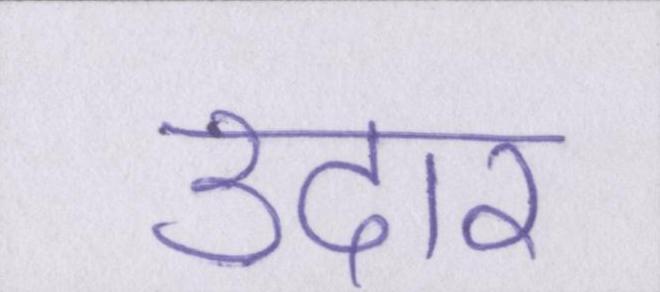 उदार